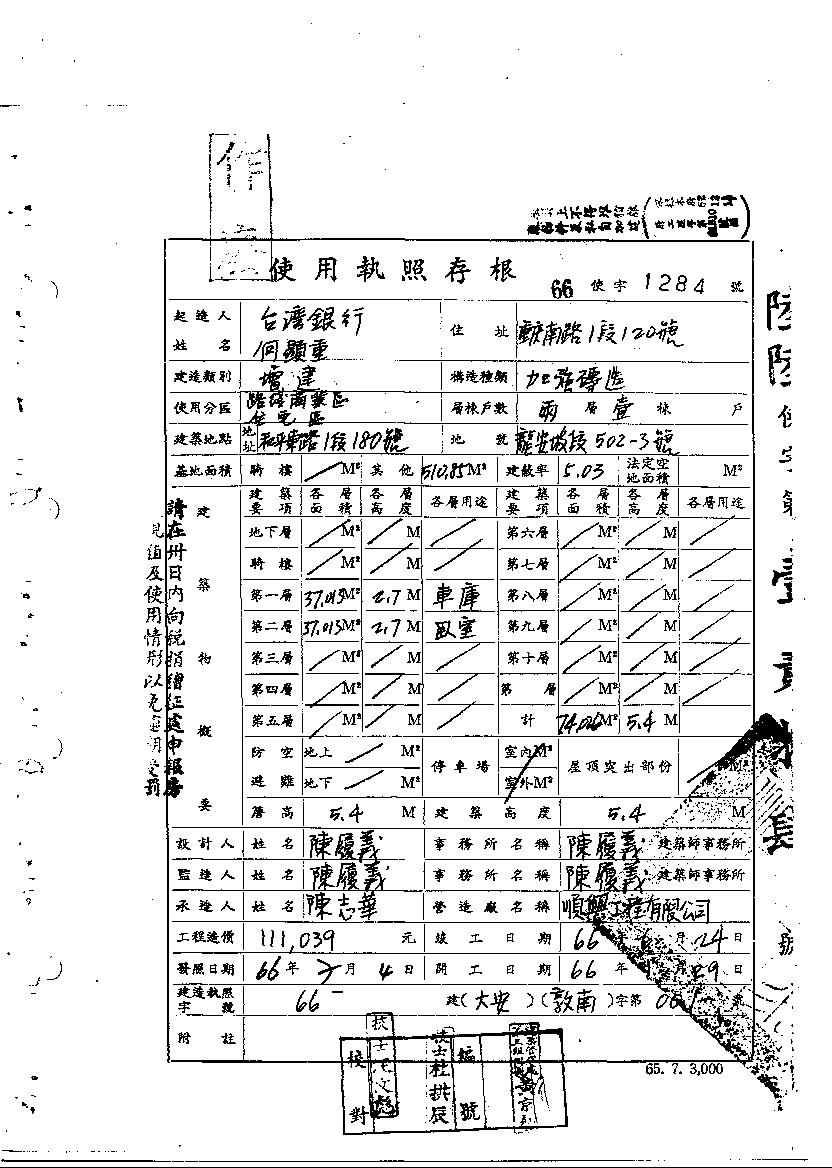 使用執照存根
66 使字 1284 號
起造人姓名 台灣銀行 何顯重 住址 重慶南路1段120號
建造類別 增建 構造種類 加強磚造
使用分區 路線商業區 住宅區 層棟戶數 兩層壹棟 戶
建築地點 地址 和平東路1段180號 地號 龍安坡段502-3號
基地面積 騎樓 / M² 其他 510.85M² 建蔽率 5.03 法定空地面積 M²
建築物概要
建築要項 各層面積 各層高度 各層用途 建築要項 各層面積 各層高度 各層用途
地下層 / M² / M / 第六層 / M² / M /
騎樓 / M² / M / 第七層 / M² / M /
第一層 37.013M² 2.7 M 車庫 第八層 / M² / M /
第二層 37.013M² 2.7 M 臥室 第九層 / M² / M /
第三層 / M² / M / 第十層 / M² / M /
第四層 / M² / M / 第 層 / M² / M /
第五層 / M² / M / 計 74.026M² 5.4 M
防空避難 地上 / M² 停車場 室內 M² 屋頂突出部份 M²
地下 / M² 室外 M²
簷高 5.4 M 建築高度 5.4 M
設計人 姓名 陳履義 事務所名稱 陳履義 建築師事務所
監造人 姓名 陳履義 事務所名稱 陳履義 建築師事務所
承造人 姓名 陳志華 營造廠名稱 順興工程有限公司
工程造價 111,039 元 竣工日期 66年6月24日
發照日期 66年7月4日 開工日期 66年 月29日
建造執照字號 66- 建(大安)(敦南)字第
附註
65. 7. 3,000
校對
編號
請在卅日內向稅捐稽征處申報房
使字第
號